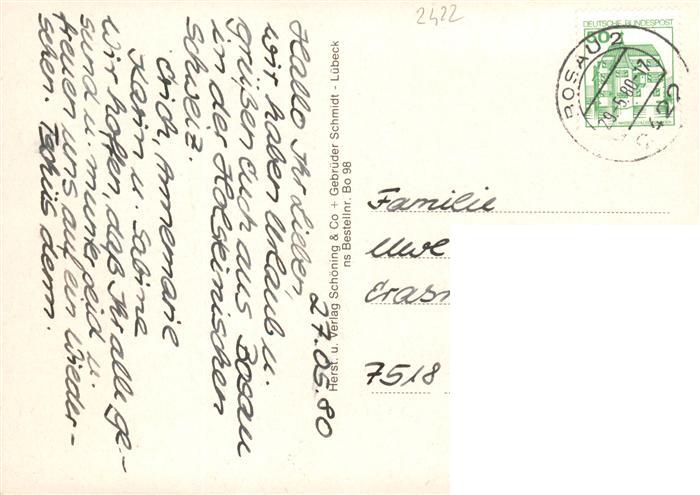 27.05.80
Hallo Ihr Lieben,
wir haben Urlaub u.
grüßen Euch aus Bosau
in der Holsteinischen
Schweiz.
Erich, Annemarie
Karin u. Sabine
Wir hoffen, daß Ihr alle ge-
sund u. munter seid u.
freuen uns auf ein Wieder-
sehen. Tschüs denn.
Herst. u. Verlag Schöning & Co + Gebrüder Schmidt - Lübeck
ns Bestellnr. Bo 98
2422
DEUTSCHE BUNDESPOST
BOSAU 2
29.-5.80-17
2422
Familie
Uwe
Eras
7518